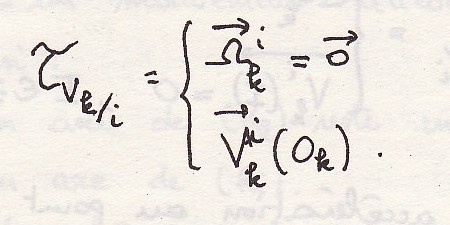 τ̃_{V_{k/i}} = { \vec{Ω}_k^i = \vec{0}
\vec{V}_k^i (O_k) .